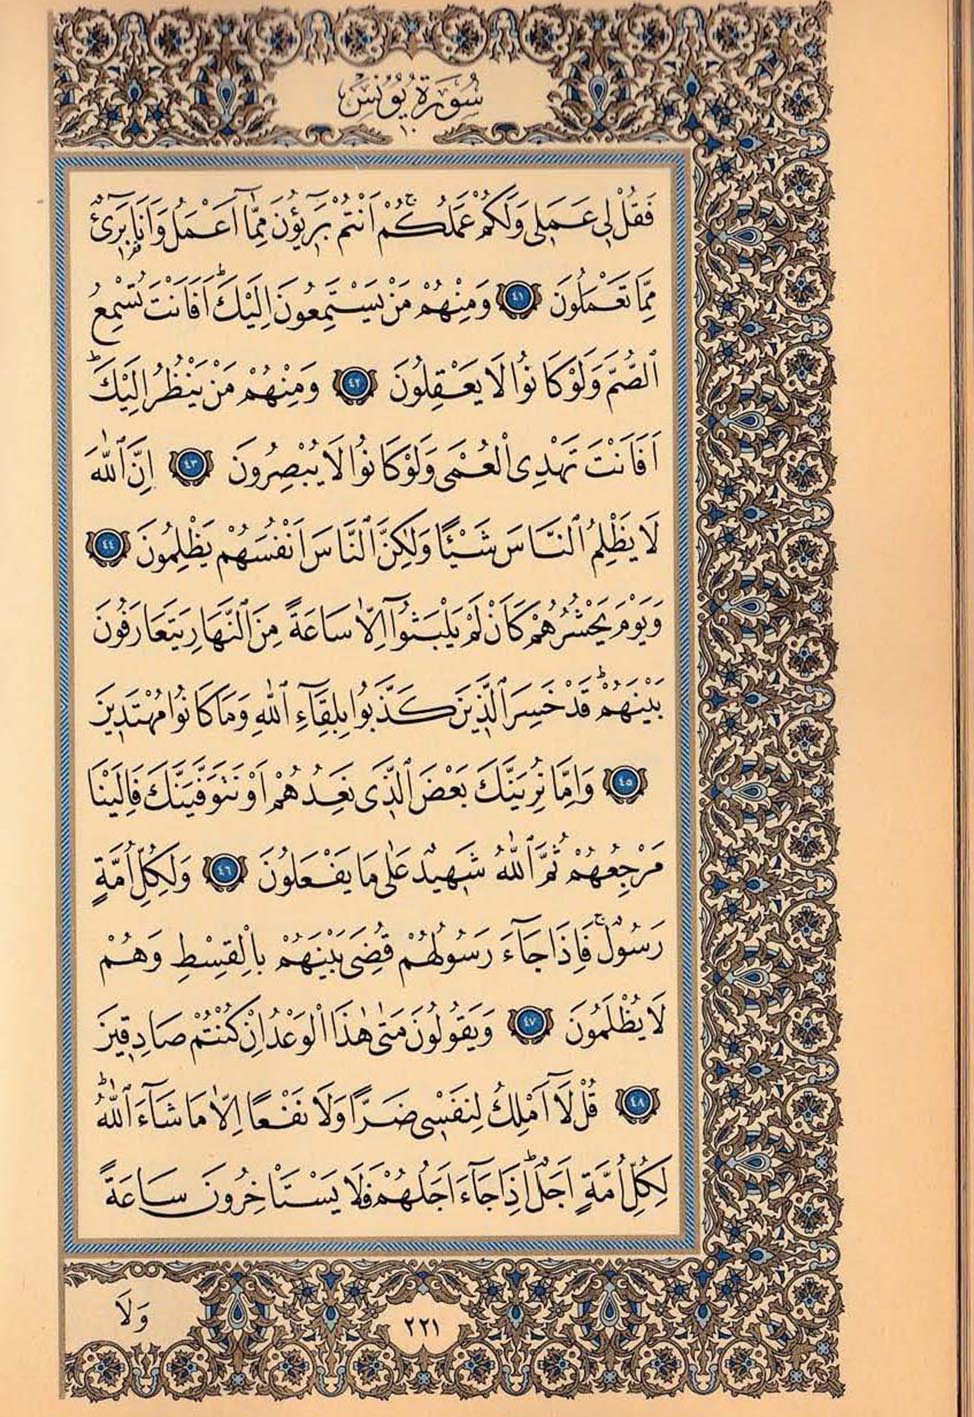 سُورَةُ يُونُسَ
١٠
فَقُلْ لِى عَمَلِى وَلَكُمْ عَمَلُكُمْ ۚ اَنْتُمْ بَرِٓيؤُ۫نَ مِمَّٓا اَعْمَلُ وَاَنَا۬ بَرِٓىءٌ
مِمَّا تَعْمَلُونَ ﴿٤١﴾ وَمِنْهُمْ مَنْ يَسْتَمِعُونَ اِلَيْكَۜ اَفَاَنْتَ تُسْمِعُ
الصُّمَّ وَلَوْ كَانُوا لَا يَعْقِلُونَ ﴿٤٢﴾ وَمِنْهُمْ مَنْ يَنْظُرُ اِلَيْكَۜ
اَفَاَنْتَ تَهْدِى الْعُمْىَ وَلَوْ كَانُوا لَا يُبْصِرُونَ ﴿٤٣﴾ اِنَّ اللّٰهَ
لَا يَظْلِمُ النَّاسَ شَيْـًٔا وَلٰكِنَّ النَّاسَ اَنْفُسَهُمْ يَظْلِمُونَ ﴿٤٤﴾
وَيَوْمَ يَحْشُرُهُمْ كَاَنْ لَمْ يَلْبَثُٓوا اِلَّا سَاعَةً مِنَ النَّهَارِ يَتَعَارَفُونَ
بَيْنَهُمْۜ قَدْ خَسِرَ الَّذِينَ كَذَّبُوا بِلِقَٓاءِ اللّٰهِ وَمَا كَانُوا مُهْتَدِينَ
﴿٤٥﴾ وَاِمَّا نُرِيَنَّكَ بَعْضَ الَّذِى نَعِدُهُمْ اَوْ نَتَوَفَّيَنَّكَ فَاِلَيْنَا
مَرْجِعُهُمْ ثُمَّ اللّٰهُ شَهِيدٌ عَلٰى مَا يَفْعَلُونَ ﴿٤٦﴾ وَلِكُلِّ اُمَّةٍ
رَسُولٌ ۚ فَاِذَا جَٓاءَ رَسُولُهُمْ قُضِىَ بَيْنَهُمْ بِالْقِسْطِ وَهُمْ
لَا يُظْلَمُونَ ﴿٤٧﴾ وَيَقُولُونَ مَتٰى هٰذَا الْوَعْدُ اِنْ كُنْتُمْ صَادِقِينَ
﴿٤٨﴾ قُلْ لَٓا اَمْلِكُ لِنَفْسِى ضَرًّا وَلَا نَفْعًا اِلَّا مَا شَٓاءَ اللّٰهُۜ
لِكُلِّ اُمَّةٍ اَجَلٌۜ اِذَا جَٓاءَ اَجَلُهُمْ فَلَا يَسْتَاْخِرُونَ سَاعَةً
وَلَا
٢٢١